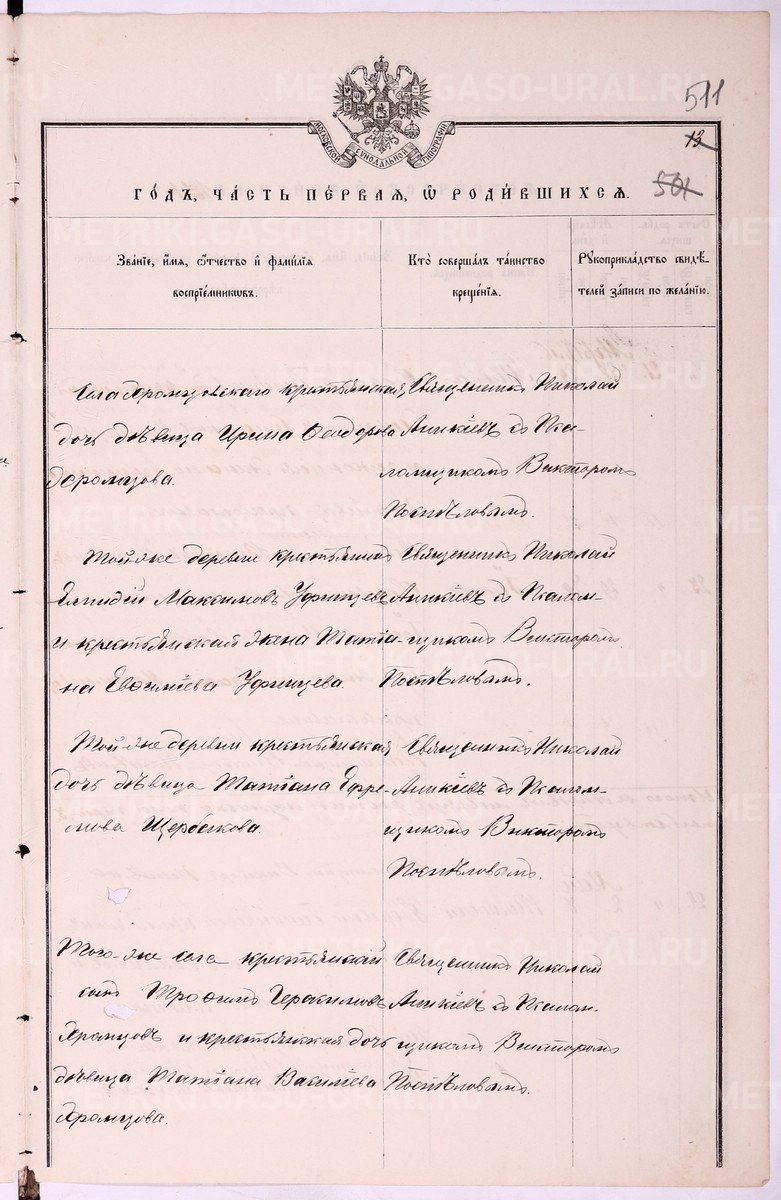 METRIKI.GASO-URAL.RU
511
МОСКОВСКОЙ СУНОДАЛЬНОЙ ТИПОГРАФІИ
13
501
ГО́ДЪ, ЧА́СТЬ ПЕ́РВАЯ, Ѡ РОДИ́ВШИХСЯ.
Зва́нїе, и́мя, Ѻ́тчество и҆ фами́лїя
воспрїе́мникѡвъ.
Кто̀ соверша́лъ та́инство
креще́нїя.
Рꙋкоприкла́дство свидѣ́-
телей за́писи по жела́нїю.
Села Храмцовскаго крестьянская
дочь дѣвица Ирина Ѳеодорова
Храмцова.
Священникъ Николай
Аникіевъ съ Пса-
ломщикомъ Викторомъ
Поспѣловымъ.
Той-же деревни крестьянинъ
Елпидій Максимовъ Уфинцевъ
и крестьянская жена Татіа-
на Евсиліева Уфинцева.
Священникъ Николай
Аникіевъ съ Псалом-
щикомъ Викторомъ
Поспѣловымъ.
Той-же деревни крестьянская
дочь дѣвица Татіана Ефре-
мова Щербакова.
Священникъ Николай
Аникіевъ съ Псалом-
щикомъ Викторомъ
Поспѣловымъ.
Того-же села крестьянскій
сынъ Трофимъ Герасимовъ
Храмцовъ и крестьянская дочь
дѣвица Татіана Василіева
Храмцова.
Священникъ Николай
Аникіевъ съ Псалом-
щикомъ Викторомъ
Поспѣловымъ.